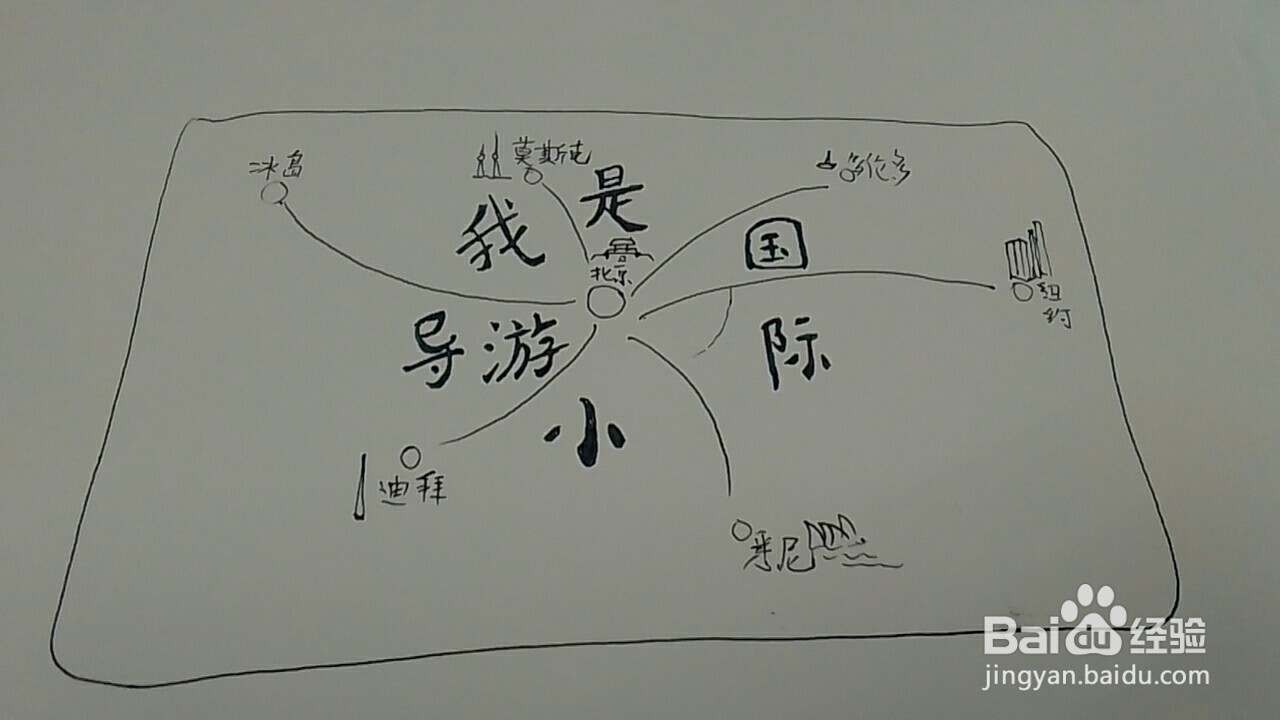 冰岛
莫斯屯
多伦多
我是
国
北京
纽约
导游
际
小
迪拜
悉尼
Baidu 经验
jingyan.baidu.com